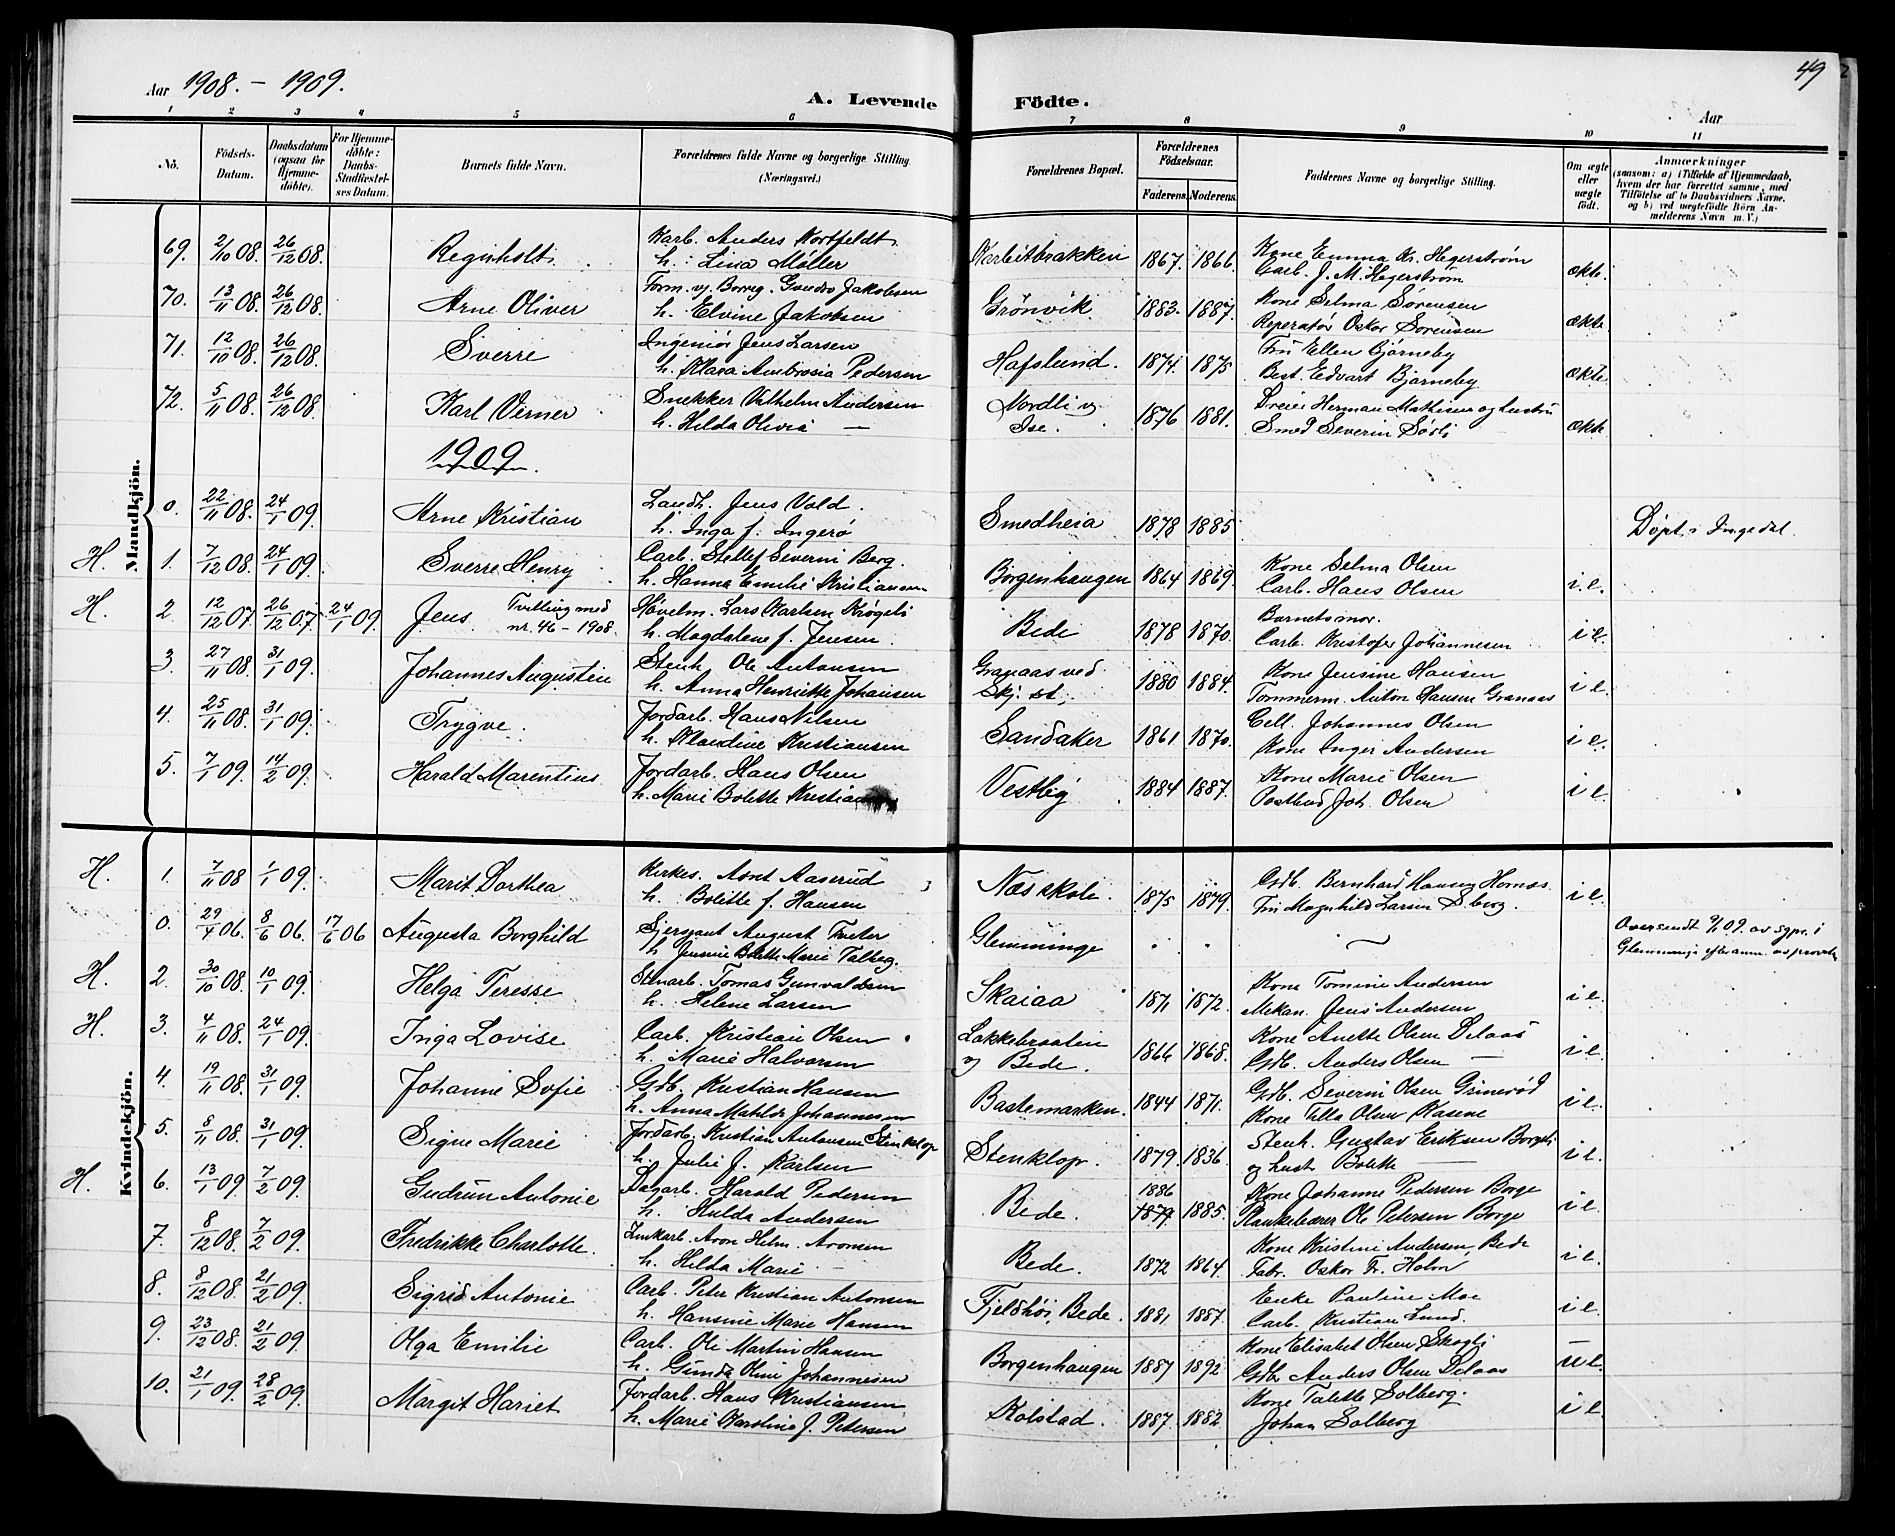 Aar 1908. – 1909.
A. Levende Födte.
49
Aar
1 2 3 4 5 6 7 8 9 10 11
No.
Födsels-Datum.
Daabsdatum (ogsaa for Hjemme-döbte).
For Hjemme-döbte: Daabs-Stadfæstel-ses Datum.
Barnets fulde Navn.
Forældrenes fulde Navne og borgerlige Stilling. (Næringsvei.)
Forældrenes Bopæl.
Forældrenes Födselsaar.
Faderens. Moderens.
Faddernes Navne og borgerlige Stilling.
Om ægte eller uægte födt.
Anmærkninger (saasom: a) i Tilfælde af Hjemmedaab, hvem der har forrettet samme, med Tilföielse af to Daabsvidners Navne, og b) ved uægtefödte Börn An-melderens Navn m. V.)
Mandkjön.
69. 2/10 08. 26/12 08. Reginholt. Karb. Anders Kortfeldt. Karbitbrakken 1867. 1866. Kone Emma Kr. Hegerstrøm ækte.
h.: Lina Møller Garb. J. M. Hegerstrøm
70. 13/11 08. 26/12 08. Arne Oliver Form. v. Borreg. Gundro Jakobsen Grönvik 1883. 1887. Kone Selma Sørensen ækte.
h. Elvine Jakobsen Reperatør Oskar Sørensen
71. 12/10 08. 26/12 08. Sverre Ingeniør Jens Larsen Hafslund. 1874. 1875 Fru Ellen Bjørneby ækte.
h. Klara Ambrosia Pedersen Best. Edvart Bjørneby
72. 5/11 08. 26/12 08. Karl Verner Snekker Vilhelm Andersen Nordli v. Ise. 1876 1881. Dreier Herman Mathisen og hustru ækte
h. Hilda Olivia — Smed Severin Sørli
1909.
0. 22/11 08. 24/1 09. Arne Kristian Landh. Jens Vold. Smedheia 1878 1885 Döpt i Ingedal.
h. Inga f. Ingerø
H. 1. 7/12 08. 24/1 09. Sverre Henry Carb. Stellef Severin Berg. Borgenhaugen 1864 1869. Kone Selma Olsen i e.
h. Hanna Emilie Kristiansen Carb. Hans Olsen
H. 2 12/12 07. 26/12 07. 24/1 09. Jens Tvilling med nr. 46 – 1908. Høvelm. Lars Karlsen Krøgeli Bede 1878 1870. Barnets mor. i e.
h. Magdalene f. Jensen. Carb. Kristofer Johannesen
3. 27/11 08. 31/1 09. Johannes Augustin Stenh. Ole Antonsen Granaas ved Skj. st. 1880 1884. Kone Jensine Hansen i e.
h. Anna Henriette Johansen Tømmerm. Anton Hansen Granaas
4. 25/11 08. 31/1 09. Trygve. Jordarb. Hans Nilsen Sandaker 1861 1870. Cell. Johannes Olsen i e.
h. Klaudine Kristiansen Kone Inger Andersen
5. 7/1 09. 14/2 09. Harald Marentius Jordarb. Hans Olsen Vestby 1884 1887. Kone Marie Olsen i e.
h. Marie Bolette Kristiansen Postbud Joh. Olsen
Kvindekjön.
H. 1. 7/11 08 1/1 09. Marit Dorthea Kirkes. Arnt Aaserud Næs skole. 1875 1879. Gdb. Bernhard Hansen Hornæs. i e.
h. Bolette f. Hansen Fru Magnhild Larsen
0. 29/4 06. 8/6 06. 17/6 06 Augusta Borghild Sjersjant August Tveter Glemminge " " Oversendt 09. av sgpr. i
h. Jensine Bolette Marie Talberg. Glemminge efter anm. av provsten
H. 2. 30/10 08. 10/1 09. Helga Teresse Stenarb. Tomas Gunvaldsen Skaiaa 1871 1872. Kone Tomine Andersen i e.
h. Helene Larsen Mekan. Jens Andersen
H. 3. 4/11 08. 24/1 09. Inga Lovise Carb. Kristian Olsen Løkkebraaten v. Bede. 1866 1868. Kone Anette Olsen Delaas i e.
h. Marie Halvorsen Gdb. Anders Olsen —
4. 19/11 08. 31/1 09. Johanne Sofie Gdb. Kristian Hansen Bastemarken. 1844 1871. Gdb. Severin Olsen Grimerød i e.
h. Anna Matilde Johannesen Kone Tilla Olsen Kasene
5. 8/11 08. 31/1 09. Signe Marie Jordarb. Kristian Antonsen Stenklop Stenklop. 1879. 1836. Stenh. Gustav Eriksen Borgeli i e.
h. Julie J. Karlsen og hust. Bolette —
H. 6. 13/1 09. 7/2 09. Gudrun Antonie Dagarb. Harald Pedersen Bede. 1886 1879. 1885. Kone Johanne Pedersen Borge i e.
h. Hulda Andersen Plankebærer Ole Petersen Borge
7. 8/12 08. 7/2 09. Fredrikke Charlotte. Zinkarb. Aron Helm. Aronsen Bede. 1872 1864. Kone Kristine Andersen, Bede i e.
h. Hilda Marie — Fabr. Oskar Fr. Holm
8. 8/12 08. 21/2 09. Sigrid Antonie Carb. Peter Kristian Antonsen Fjeldhöi, Bede. 1881 1887. Enke Pauline Moe i e.
h. Hansine Marie Hansen Carb. Kristian Lund.
9. 23/12 08. 21/2 09. Olga Emilie Carb. Ole Martin Hansen Borgenhaugen 1887 1892 Kone Elisabet Olsen Skogli u e.
h. Gunda Oline Johannesen Gdb. Anders Olsen Delaas
10. 21/1 09. 28/2 09. Margit Hariet Jordarb. Hans Kristiansen Kolstad. 1887. 1882. Kone Talette Solberg. i e.
h. Marie Karoline J. Petersen Johan Solberg